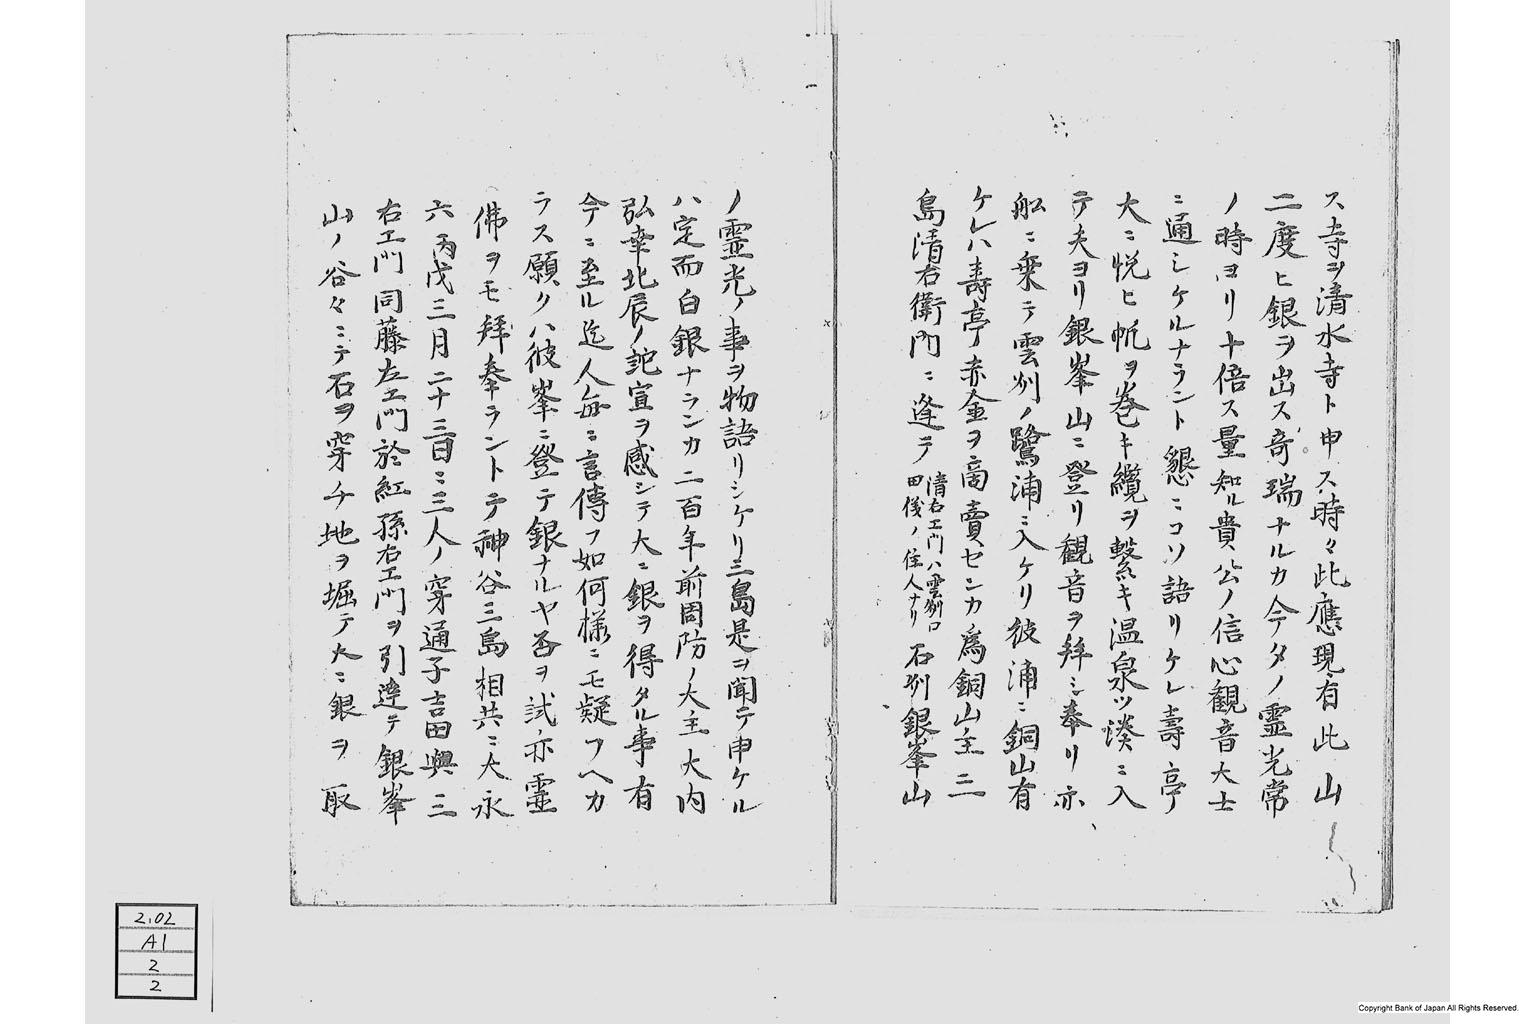 ス寺ヲ清水寺ト申ス時々此應現有此山
二度ヒ銀ヲ出ス奇瑞ナルカ今夕ノ霊光常
ノ時ヨリ十倍ス量知ル貴公ノ信心観音大士
ニ通シケルナラント懇ニコソ語リケレ壽亭
大ニ悦ヒ帆ヲ巻キ纜ヲ繋キ温泉ツ湊ニ入
テ夫ヨリ銀峯山ニ登リ観音ヲ拜ミ奉リ亦
舩ニ乗テ雲州ノ鷺浦ニ入ケリ彼浦ニ銅山有
ケレハ壽亭ノ赤金ヲ啇賣センカ為銅山主三
島清右衛門ニ逢テ清右エ門ハ雲州口田儀ノ住人ナリ石州銀峯山
ノ霊光ノ事ヲ物語リシケリ三島是ヲ聞テ申ケル
ハ定而白銀ナランカ二百年前周防ノ大主大内
弘幸北辰ノ詫宣ヲ感シテ大ニ銀ヲ得タル事有
今ニ至ル迄人毎ニ言傳フ如何様ニモ疑フヘカ
ラス願クハ彼峯ニ登テ銀ナルヤ否ヲ試亦霊
佛ヲモ拜奉ラントテ神谷三島相共ニ大永
六丙戌三月二十三日ニ三人ノ穿通子吉田與三
右エ門同藤左エ門於紅孫右エ門ヲ引連テ銀峯
山ノ谷々ニテ石ヲ穿チ地ヲ堀テ大ニ銀ヲ取
2.02
A1
2
2
Copyright Bank of Japan All Rights Reserved.